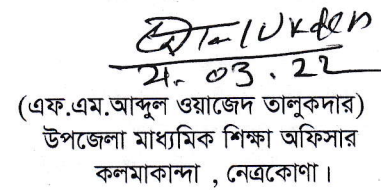 21.03.22
(এফ.এম.আব্দুল ওয়াজেদ তালুকদার)
উপজেলা মাধ্যমিক শিক্ষা অফিসার
কলমাকান্দা , নেত্রকোণা ।